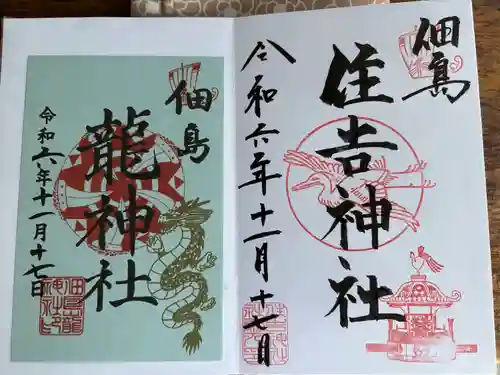 佃島
住吉神社
令和六年十一月十七日
佃島
龍神社
令和六年十一月十七日
佃島龍神社印